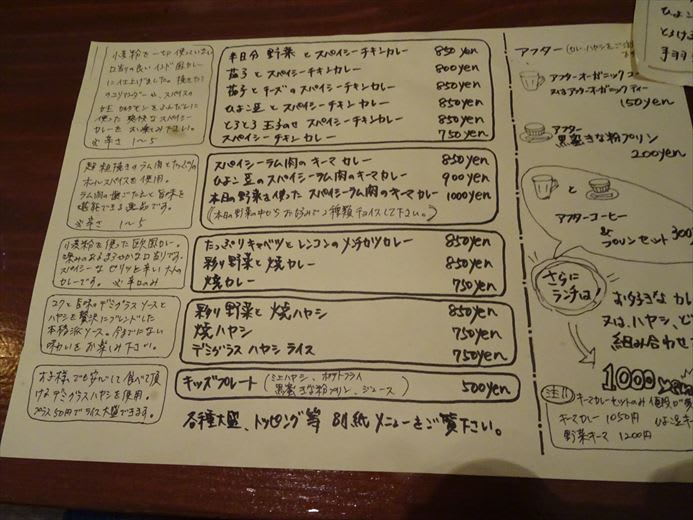 小麦粉を一切使っていない
口当りの良いインド風カレー
に仕上げました。
使った爽快なスパイシー
カレーをお楽しみ下さい。
※辛さ 1〜5
半日分 野菜 と スパイシーチキンカレー 850yen
茄子と スパイシーチキンカレー 800yen
茄子と チーズの スパイシーチキンカレー 850yen
ひよこ豆と スパイシーチキンカレー 850yen
とろとろ玉子のせ スパイシーチキンカレー 850yen
スパイシーチキンカレー 750yen
超粗挽きのラム肉とたっぷりの
ホールスパイスを使用。
ラム肉の歯ごたえと旨味を
堪能できる逸品です。
※辛さ 1〜5
スパイシーラム肉のキーマカレー 850yen
ひよこ豆のスパイシーラム肉のキーマカレー 900yen
本日の野菜を使ったスパイシーラム肉のキーマカレー 1000yen
(本日の野菜の中からお好みで2種類チョイスして下さい。)
小麦粉を使った欧風カレー。
スパイシーなピリッと辛い大人の
カレーです。 ※辛口のみ
たっぷりキャベツとレンコンのメンチカツカレー 850yen
彩り野菜と焼カレー 850yen
焼カレー 750yen
コクと旨味のデミグラスソースと
ハヤシを贅沢にブレンドした
本格派ソース。今までにない
味わいをお楽しみ下さい。
彩り野菜と 焼ハヤシ 850yen
焼ハヤシ 750yen
デミグラス ハヤシライス 750yen
お子様でも安心して食べて頂
けるデミグラスハヤシを使用。
プラス50円でライス大盛できます。
キッズプレート (ミニハヤシ、ポテトフライ 黒蜜きな粉プリン、ジュース) 500yen
各種大盛、トッピング等 別紙メニューをご覧下さい。
アフター (カレー、ハヤシをご注
アフターオーガニックコー
又はアフターオーガニックティー
150yen
アフター
黒蜜きな粉プリン
200yen
と
アフターコーヒー
&
プリンセット 300
さらに
ランチは!
お好きなカレ
又は、ハヤシ、ど
組み合わせて
1000yen
注!! キーマカレーセットのみ値段が
キーマカレー 1050円 ひよこ豆キー
野菜キーマ 1200円
ひよこ
とろける
手羽